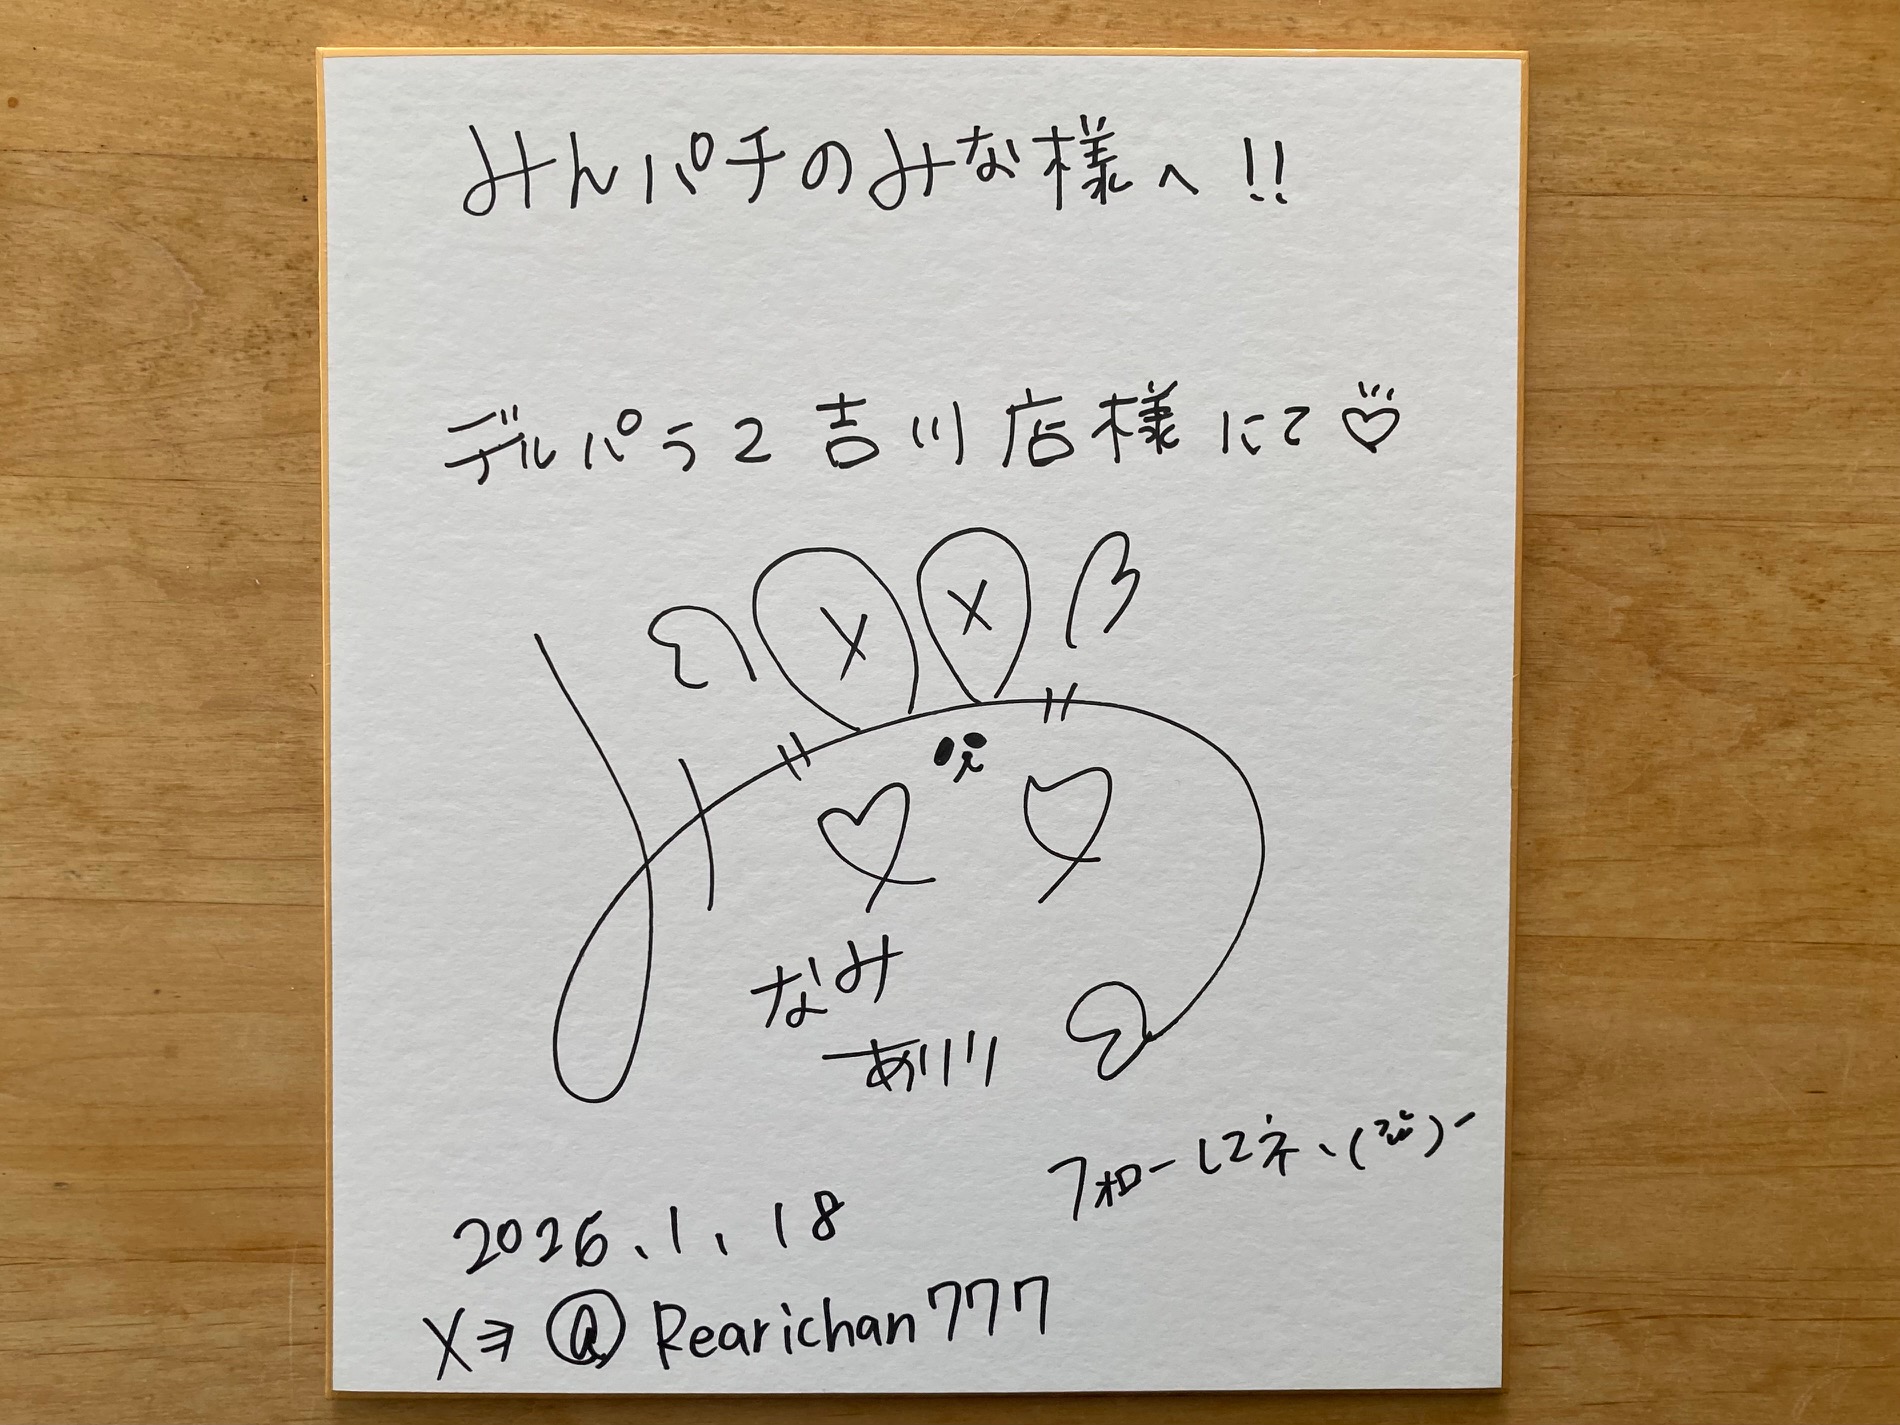 みんパチのみな様へ!!
デルパラ2吉川店様にて♡
なみ
ありり
フォローしてネ、
2026.1.18
X⇒@Rearichan777